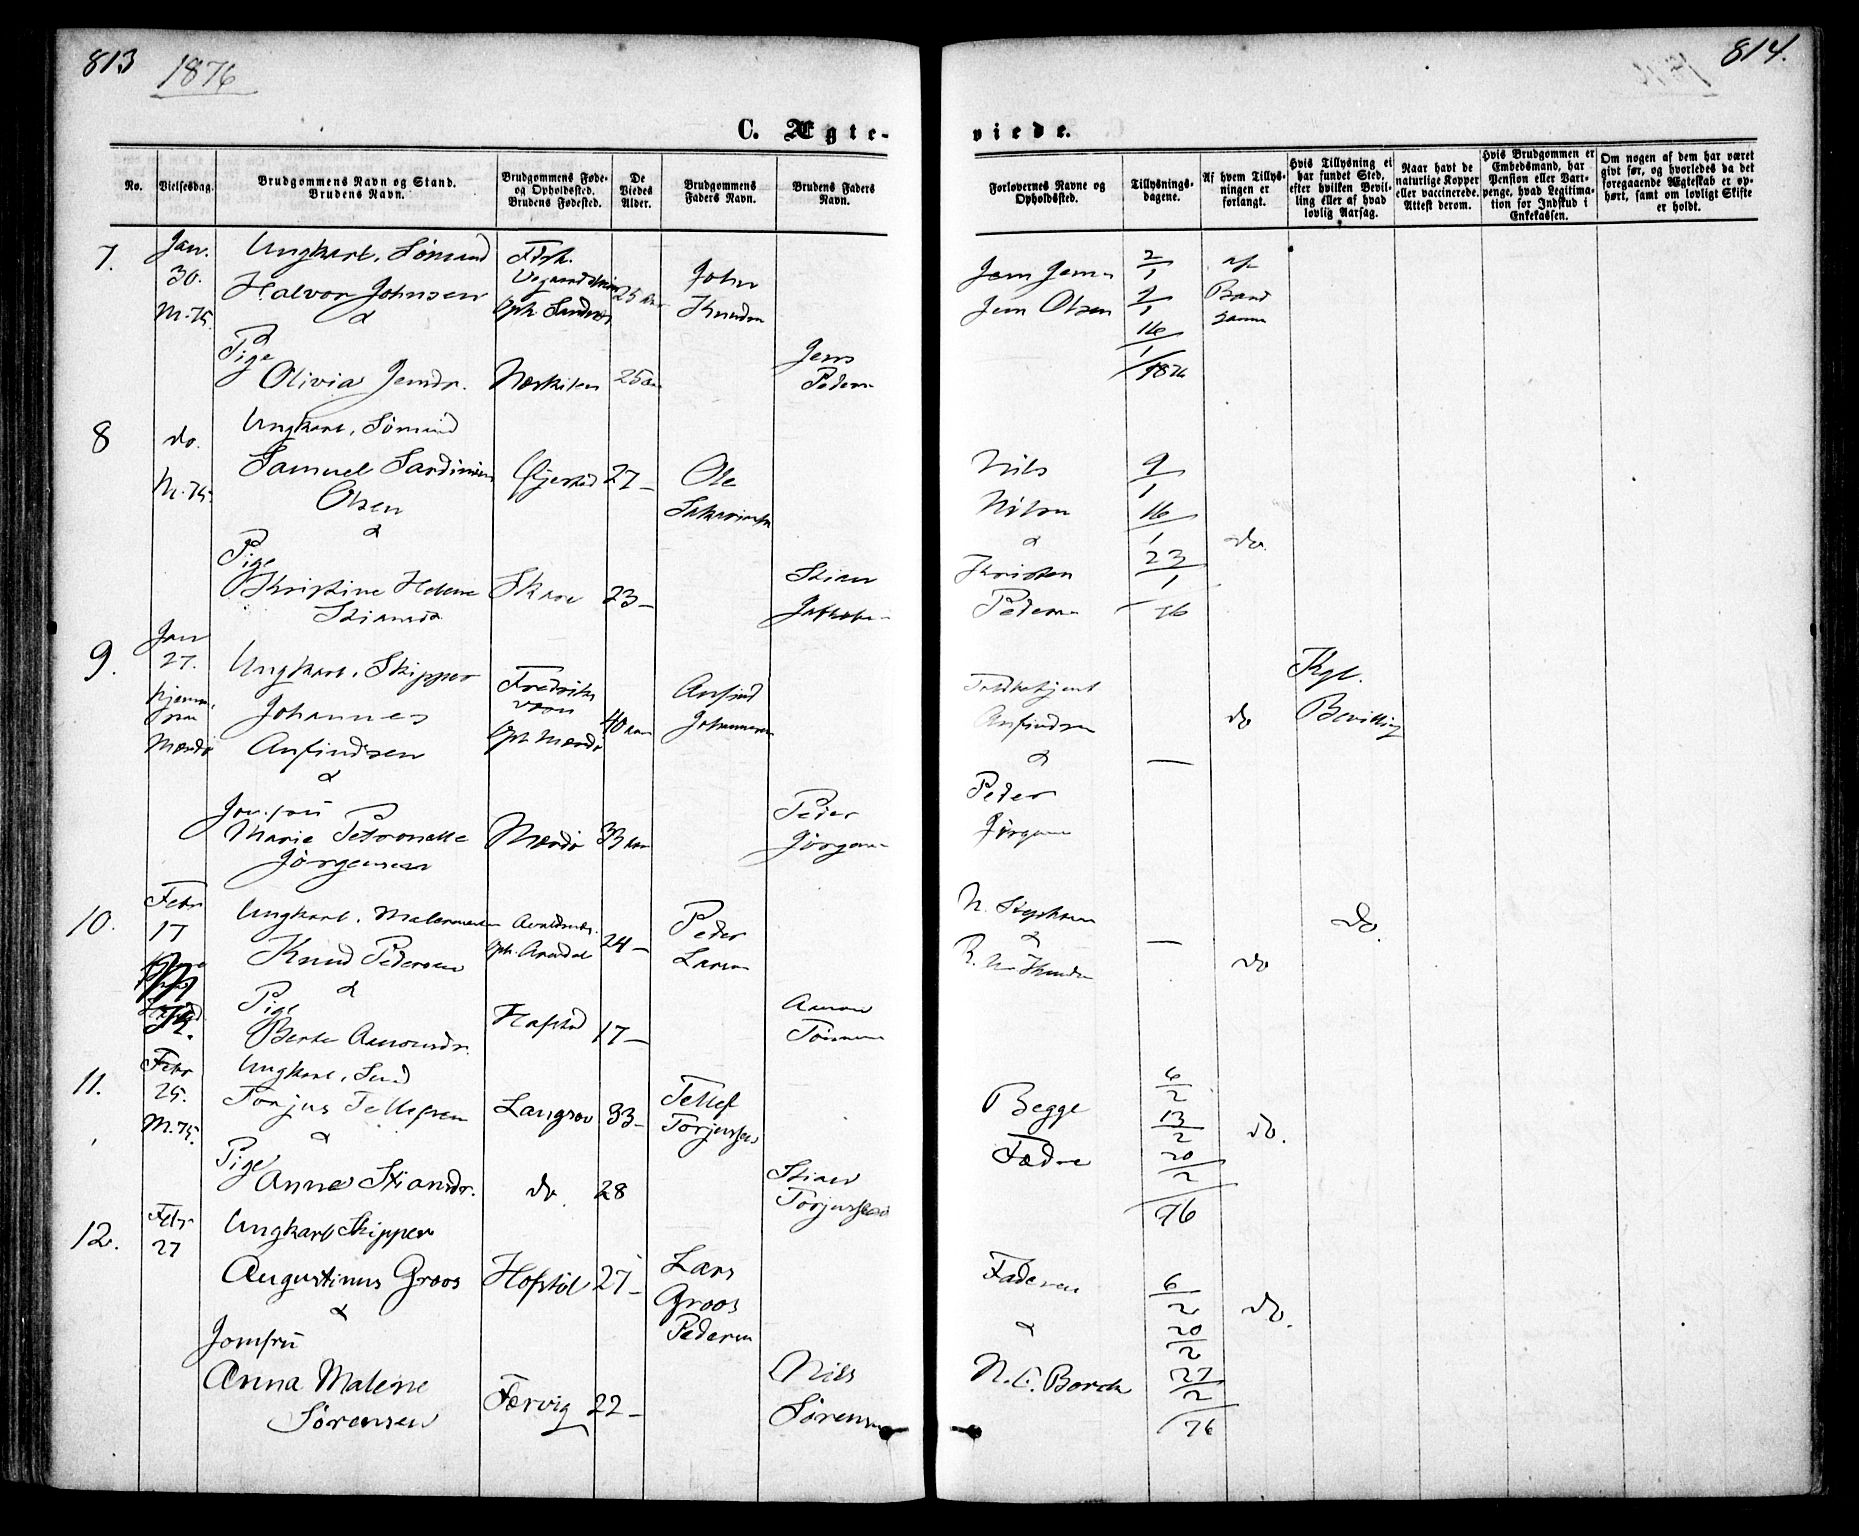 813
1876
814.
C. Ægte-
viede.
No.
Vielsesdag.
Brudgommens Navn og Stand.
Brudens Navn.
Brudgommens Føde-
og Opholdssted.
Brudens Fødested.
De
Viedes
Alder.
Brudgommens
Faders Navn.
Brudens Faders
Navn.
Forlovernes Navne og
Opholdssted.
Tillysnings-
dagene.
Af hvem Tillys-
ningen er
forlangt.
Hvis Tillysning ei
har fundet Sted,
efter hvilken Bevil-
ling eller af hvad
lovlig Aarsag.
Naar havt de
naturlige Kopper
eller vaccinerede.
Attest derom.
Hvis Brudgommen er
Embedsmand, har
Pension eller Vart-
penge, hvad Legitima-
tion for Indskud i
Enkekassen.
Om nogen af dem har været
givt før, og hvorledes da det
foregaaende Ægteskab er op-
hørt, samt om lovligt Skifte
er holdt.
7.
Jan.
30.
M. 75.
Ungkarl, Sømand
Halvor Johnsen
&
Pige
Olivia Jensdr.
25
25
John
Knudsen
Jens
Peders
Jens Jens
Jens Olsen
2/1
9/1
16/1
/1876
af
Brud
8
do.
M. 75.
Ungkarl, Sømand
Samuel
Olsen
&
Pige
Kristine Helene
Øjestad
27 –
23 –
Ole
Stian
Jakobs
Nils
Nilsen
&
Kristen
Peders
9/1
16/1
23/1
/76
do.
9.
Jan
27.
hjemme
Mærdø
Ungkarl, Skipper
Johannes
Anfindsen
&
Jomfru
Marie Petronelle
Jørgensen
Fredriks
værn
Oph. Mærdø
Mærdø
40
33
Anfind
Johannesen
Peder
Jørgens
Anfindsen
&
Peder
Jørgens
—
do
Kgl.
Bevilling
10.
Febr
17
Ungkarl, Malermester
Knud Pedersen
&
Pige
Berte Aanonsdr.
Oph. Arendal
Hafstad
24 –
17 –
Peder
Larsen
Aanon
&
—
do
Do.
11.
Febr
25.
M. 75.
Ungkarl, Smd
Torjus Tellefsen
&
Pige
Anne Stiansdr.
Langsæv
do.
33 –
28
Tellef
Torjussen
Stian
Torjussen
Begge
Fædre
6/2
13/2
20/2
/76
do.
12.
Febr
27
Ungkarl Skipper
Augustinus Groos
&
Jomfru
Anna Malene
Sørensen
Hofstøl
Færvig
27 –
22 –
Lars
Groos
Pedersen
Nils
Sørensen
Faderen
&
N. C. Borch
6/2
20/2
27/2
/76
do.